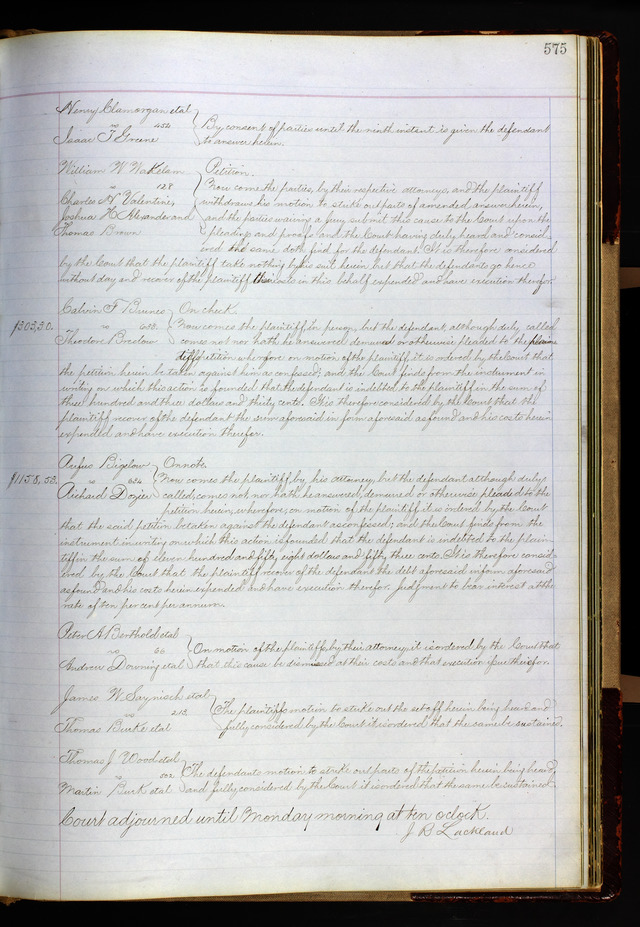 575
Henry Clamorgan etal
vs 454
Isaac T Greene
By consent of parties until the ninth instant is given the defendant
to answer herein.
William W Wakelam
vs 128
Charles N Valentine,
Joshua H Alexander and
Thomas Brown
Petition.
Now come the parties, by their respective attorneys, and the plaintiff
withdraws his motion to strike out parts of amended answer herein,
and the parties waiving a jury submit this cause to the Court upon the
pleadings and proofs and the Court having duly heard and consid-
ered the same doth find for the defendant. It is therefore considered
by the Court that the plaintiff take nothing by his suit herein but that the defendants go hence
without day and recover of the plaintiff their costs in this behalf expended and have execution therefor.
$303,30.
Calvin F Burnes
vs 638.
Theodore Breslow
On check.
Now comes the plaintiff in person, but the defendant, although duly called
comes not nor hath he answered demured or otherwise pleaded to the plain
tiffs petition wherefore on motion of the plaintiff it is ordered by the Court that
the petition herein be taken against him as confessed; and the Court finds from the instrument in
writing on which this action is founded that the defendant is indebted to the plaintiff in the sum of
three hundred and three dollars and thirty cents. It is therefore considered by the Court that the
plaintiff recover of the defendant the sum aforesaid in form aforesaid as found and his costs herein
expended and have execution therefor.
$1158,53.
Rufus Bigelow
vs 684
Richard Dozier
On note.
Now comes the plaintiff by his attorney, but the defendant although duly
called, comes not, nor hath he answered, demured or otherwise pleaded to the
petition herein, wherefore, on motion of the plaintiff it is ordered by the Court
that the said petition be taken against the defendant as confessed; and the Court finds from the
instrument in writing on which this action is founded that the defendant is indebted to the plain-
tiff in the sum of eleven hundred and fifty eight dollars and fifty three cents. It is therefore consid-
ered by the Court that the plaintiff recover of the defendant the debt aforesaid in form aforesaid
as found and his costs herein expended and have execution therefor. Judgment to bear interest at the
rate of ten per cent per annum.
Peter A Berthold etal
vs 66
Andrew Downing etal
On motion of the plaintiffs by their attorney, it is ordered by the Court that
that this cause be dismissed at their costs and that execution issue therefor.
James W Saynisch etal
vs 213
Thomas Burke etal
The plaintiffs motion to strike out the set off herein being heard and
fully considered by the Court it is ordered that the same be sustained.
Thomas J Wood etal
vs 502
Martin Burk etal
The defendants motion to strike out parts of the petition herein being heard
and fully considered by the Court it is ordered that the same be sustained
Court adjourned until Monday morning at ten oclock.
J R Lackland